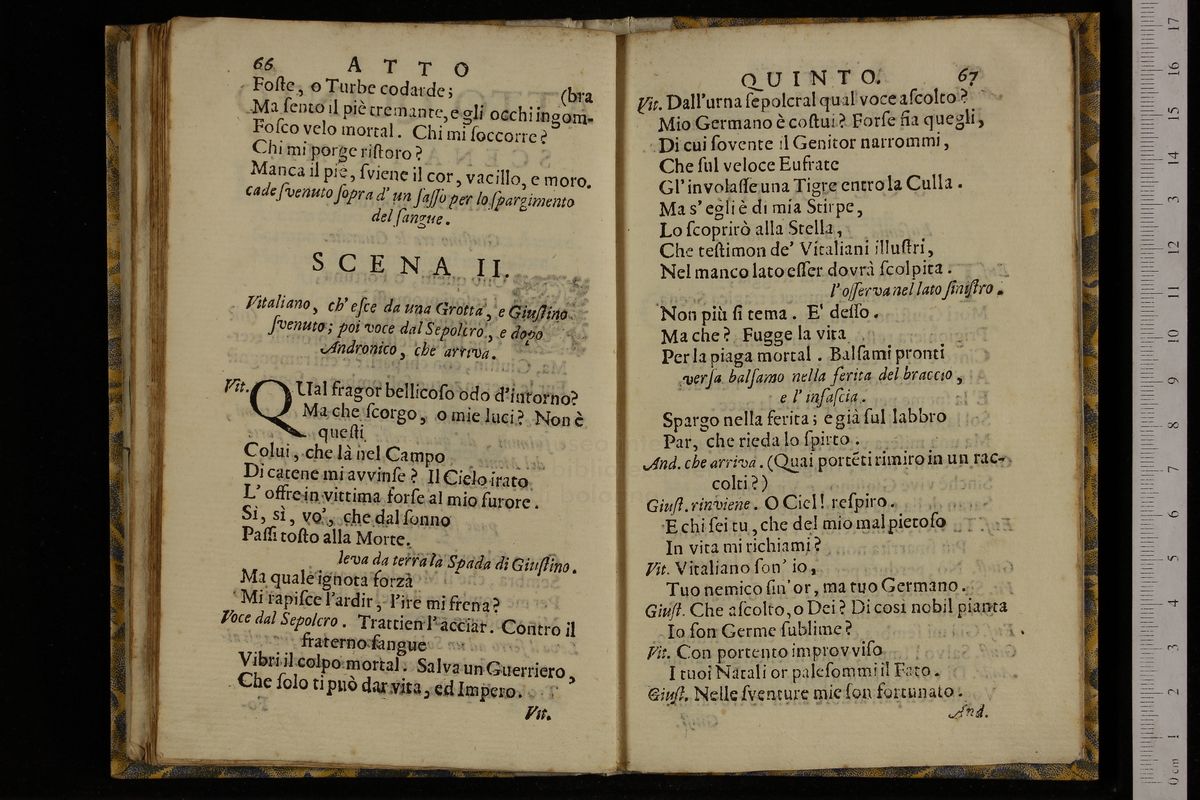 66 ATTO
Foſte, o Turbe codarde; (bra
Ma ſento il piè tremante, e gli occhi ingom-
Foſco velo mortal. Chi mi ſoccorre?
Chi mi porge riſtoro?
Manca il piè, ſviene il cor, vacillo, e moro.
cade ſvenuto ſopra d' un ſaſſo per lo ſpargimento
del ſangue.
SCENA II.
Vitaliano, ch' eſce da una Grotta, e Giuſtino
ſvenuto; poi voce dal Sepolcro, e dopo
Andronico, che arriva.
Vit. QUal fragor bellicoſo odo d'intorno?
Ma che ſcorgo, o mie luci? Non è
queſti
Colui, che là nel Campo
Di catene mi avvinſe? Il Cielo irato
L' offre in vittima forſe al mio furore.
Si, sì, vo', che dal ſonno
Paſſi toſto alla Morte.
leva da terra la Spada di Giuſtino.
Ma quale ignota forza
Mi rapiſce l'ardir, l'ire mi frena?
Voce dal Sepolcro. Trattien l'acciar. Contro il
fraterno ſangue
Vibri il colpo mortal. Salva un Guerriero,
Che ſolo ti può dar vita, ed Impero.
Vit.
QUINTO. 67
Vit. Dall'urna ſepolcral qual voce aſcolto?
Mio Germano è coſtui? Forſe fia quegli,
Di cui ſovente il Genitor narrommi,
Che ſul veloce Eufrate
Gl' involaſſe una Tigre entro la Culla.
Ma s' egli è di mia Stirpe,
Lo ſcoprirò alla Stella,
Che teſtimon de' Vitaliani illuſtri,
Nel manco lato eſſer dovrà ſcolpita.
l' oſſerva nel lato ſiniſtro.
Non più ſi tema. E' deſſo.
Ma che? Fugge la vita
Per la piaga mortal. Balſami pronti
verſa balſamo nella ferita del braccio,
e l' infaſcia.
Spargo nella ferita; e già ſul labbro
Par, che rieda lo ſpirto.
And. che arriva. (Quai portẽti rimiro in un rac-
colti?)
Giuſt. rinviene. O Ciel! reſpiro.
E chi ſei tu, che del mio mal pietoſo
In vita mi richiami?
Vit. Vitaliano ſon' io,
Tuo nemico ſin' or, ma tuo Germano.
Giuſt. Che aſcolto, o Dei? Di così nobil pianta
Io ſon Germe ſublime?
Vit. Con portento improvviſo
I tuoi Natali or paleſommi il Fato.
Giuſt. Nelle ſventure mie ſon fortunato.
And.